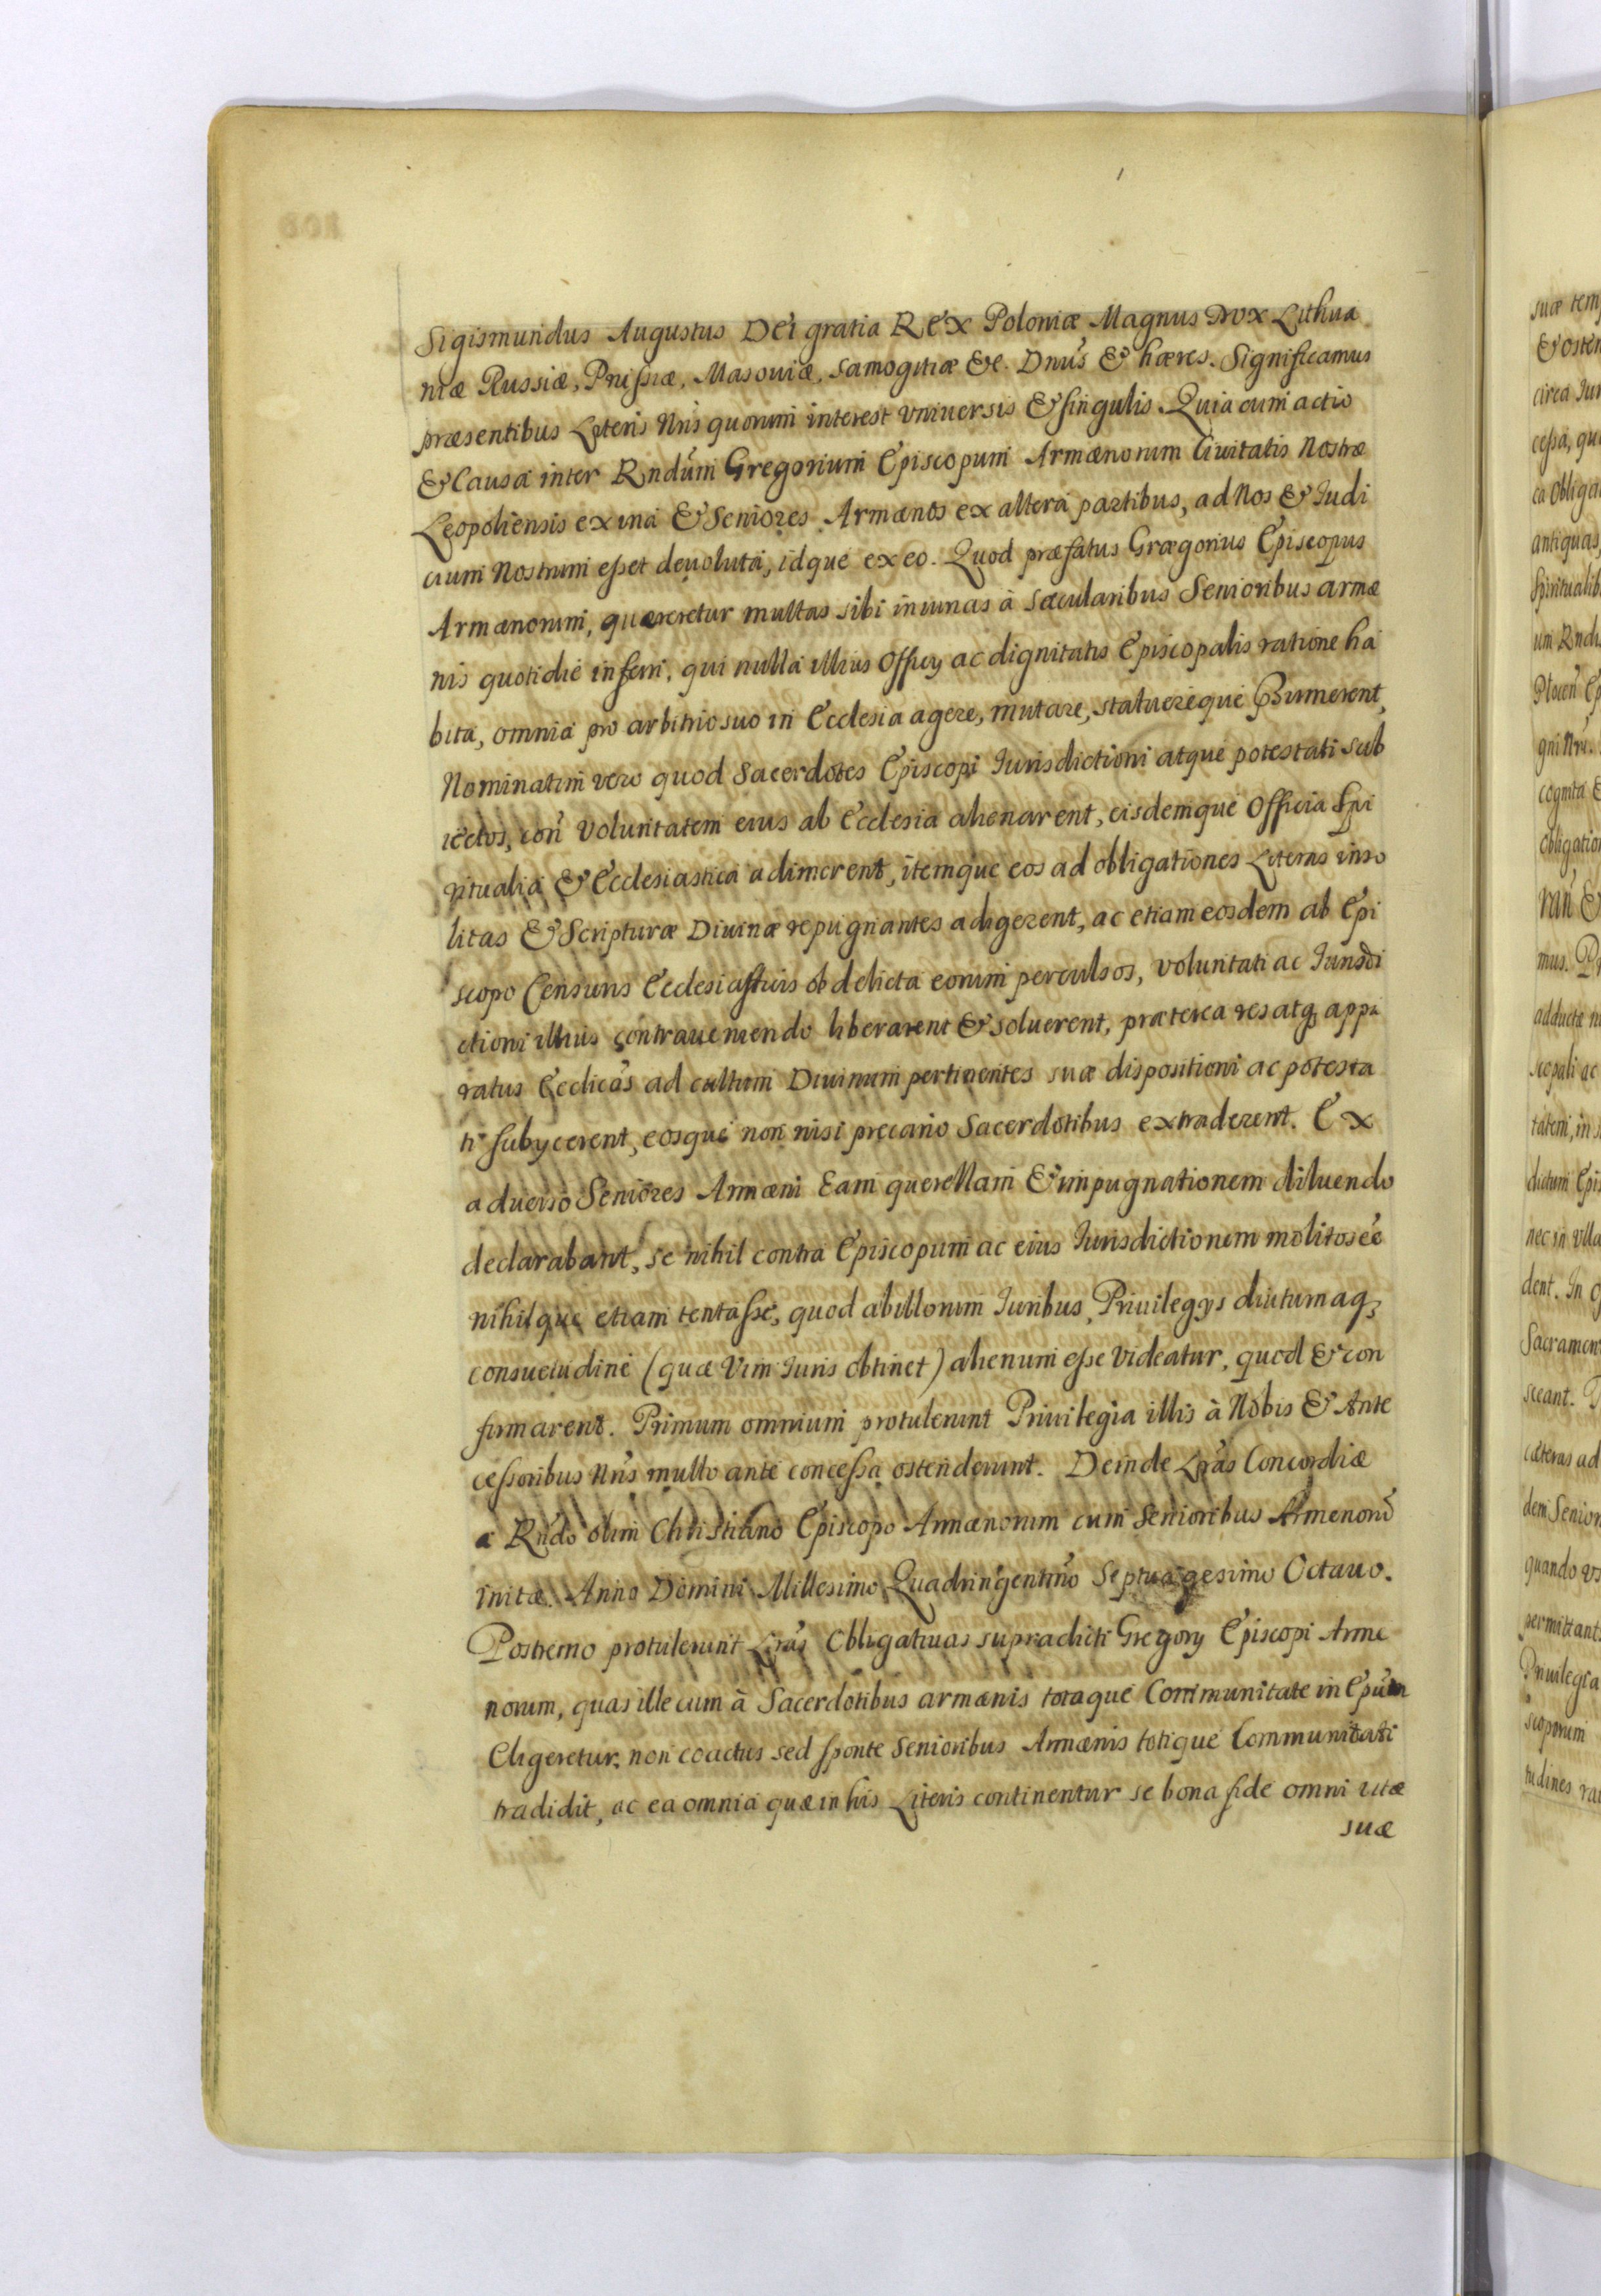 Sigismundus Augustus DEI gratia REX Poloniæ Magnus Dux Lithua
niæ Russiæ, Prussiæ, Masouiæ, Samogitiæ &c. Dnus & hæres. Significamus
præsentibus Literis Nris quorum interest vniuersis & singulis. Quia cum actio
& Causa inter Rndum Gregorium Episcopum Armænorum Ciuitatis Nostræ
Leopoliensis ex una & Seniores Armænos ex altera partibus, ad Nos & Iudi
cium Nostrum esset deuoluta, idque ex eo. Quod præfatus Grægorius Episcopus
Armænorum, quæreretur multas sibi iniurias à sæcularibus Senioribus armæ
nis quotidie inferri, qui nulla illius Officy ac dignitatis Episcopalis ratione ha
bita, omnia pro arbitrio suo in Ecclesia agere, mutare, statuereque Præsumerent,
Nominatim vero quod Sacerdotes Episcopi Iurisdictioni atque potestati sub
iectos, con voluntatem eius ab Ecclesia alienarent, eisdemque Officia Spi
ritualia & Ecclesiastica adimerent, itemque eos ad obligationes Literas inso
litas & Scripturæ Diuinæ repugnantes adigerent, ac etiam eosdem ab Epi
scopo Censuris Ecclesiasticis ob delicta eorum perculsos, voluntati ac Iurisdi
ctioni illius contraueniendo liberarent & soluerent, præterea res atq appa
ratus Ecclicos ad cultum Diuinum pertinentes suæ dispositioni ac potesta
ti subycerent, eosque non nisi precario Sacerdotibus extraderent. Ex
aduerso Seniores Armæni Eam querellam & impugnationem diluendo
declarabant, se nihil contra Episcopum ac eius Iurisdictionem molitos ee
nihilque etiam tentasse, quod ab illorum Iuribus, Priuilegys diuturnaq
consuetudine (quæ Vim Iuris obtinet) alienum esse videatur, quod & con
firmarent. Primum omnium protulerunt Priuilegia illis à Nobis & Ante
cessoribus Nris multo ante concessa ostenderunt. Deinde Lras Concordiæ
a Rndo olim Christiano Episcopo Armænorum cum Senioribus Armenoru
initæ. Anno Domini Millesimo Quadringentmo Septuagesimo Octauo.
Postremo protulerunt Lras Obligatiuas supradicti Gregory Episcopi Arme
norum, quas ille cum à Sacerdotibus armænis totaque Communitate in Epum
Eligeretur, non coactus sed sponte Senioribus Armænis totique Communitati
tradidit, ac ea omnia quæ in his Literis continentur se bona fide omni vitæ
suæ